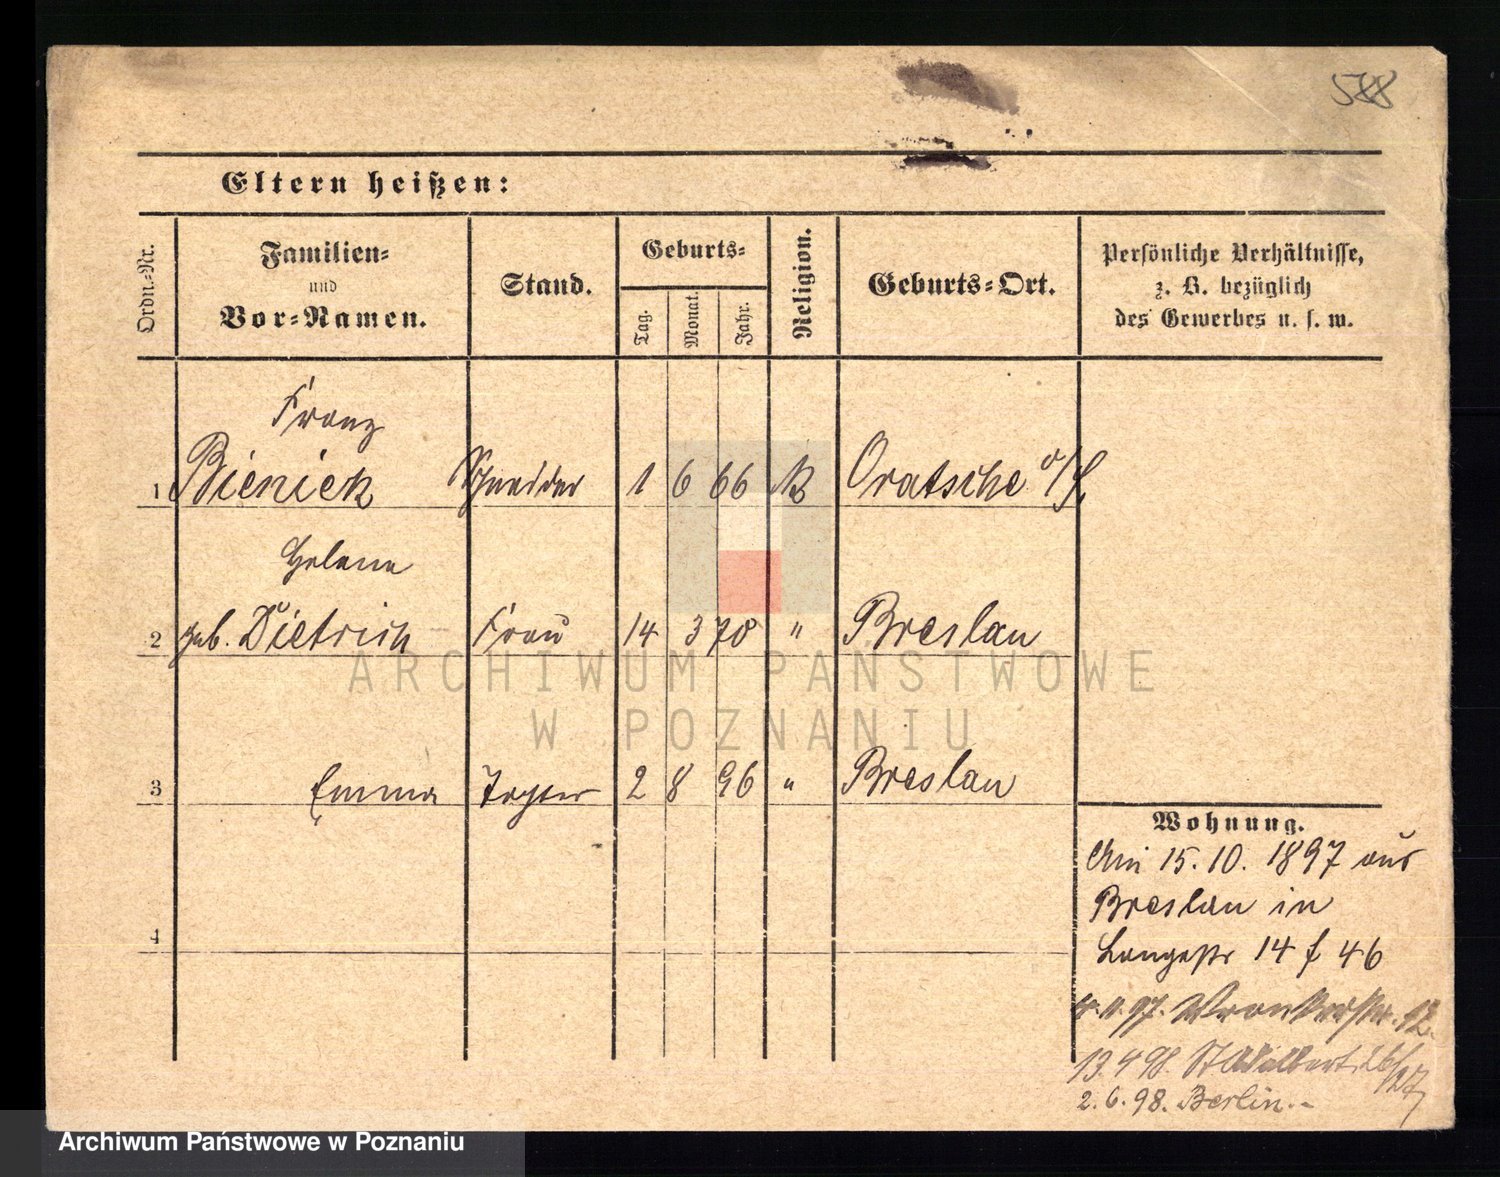 588
Eltern heißen:
Ordn.-Nr.
Familien-
und
Vor-Namen.
Stand.
Geburts-
Tag.
Monat.
Jahr.
Religion.
Geburts-Ort.
Persönliche Verhältnisse,
z. B. bezüglich
des Gewerbes u. s. w.
Franz
1 Bieniek Schneider 1 6 66 Oratsche o/S.
Helene
2 geb. Dietrich Frau 14 3 70 " Breslau
3 Emma Tochter 2 8 96 " Breslau
4
Wohnung.
Am 15.10.1897 aus
Breslau in
Langestr 14 f 46
97. Wronkerstr. 12.
13.4 98. St Adalbert 26/27
2.6.98. Berlin.-
ARCHIWUM PAŃSTWOWE
W POZNANIU
Archiwum Państwowe w Poznaniu